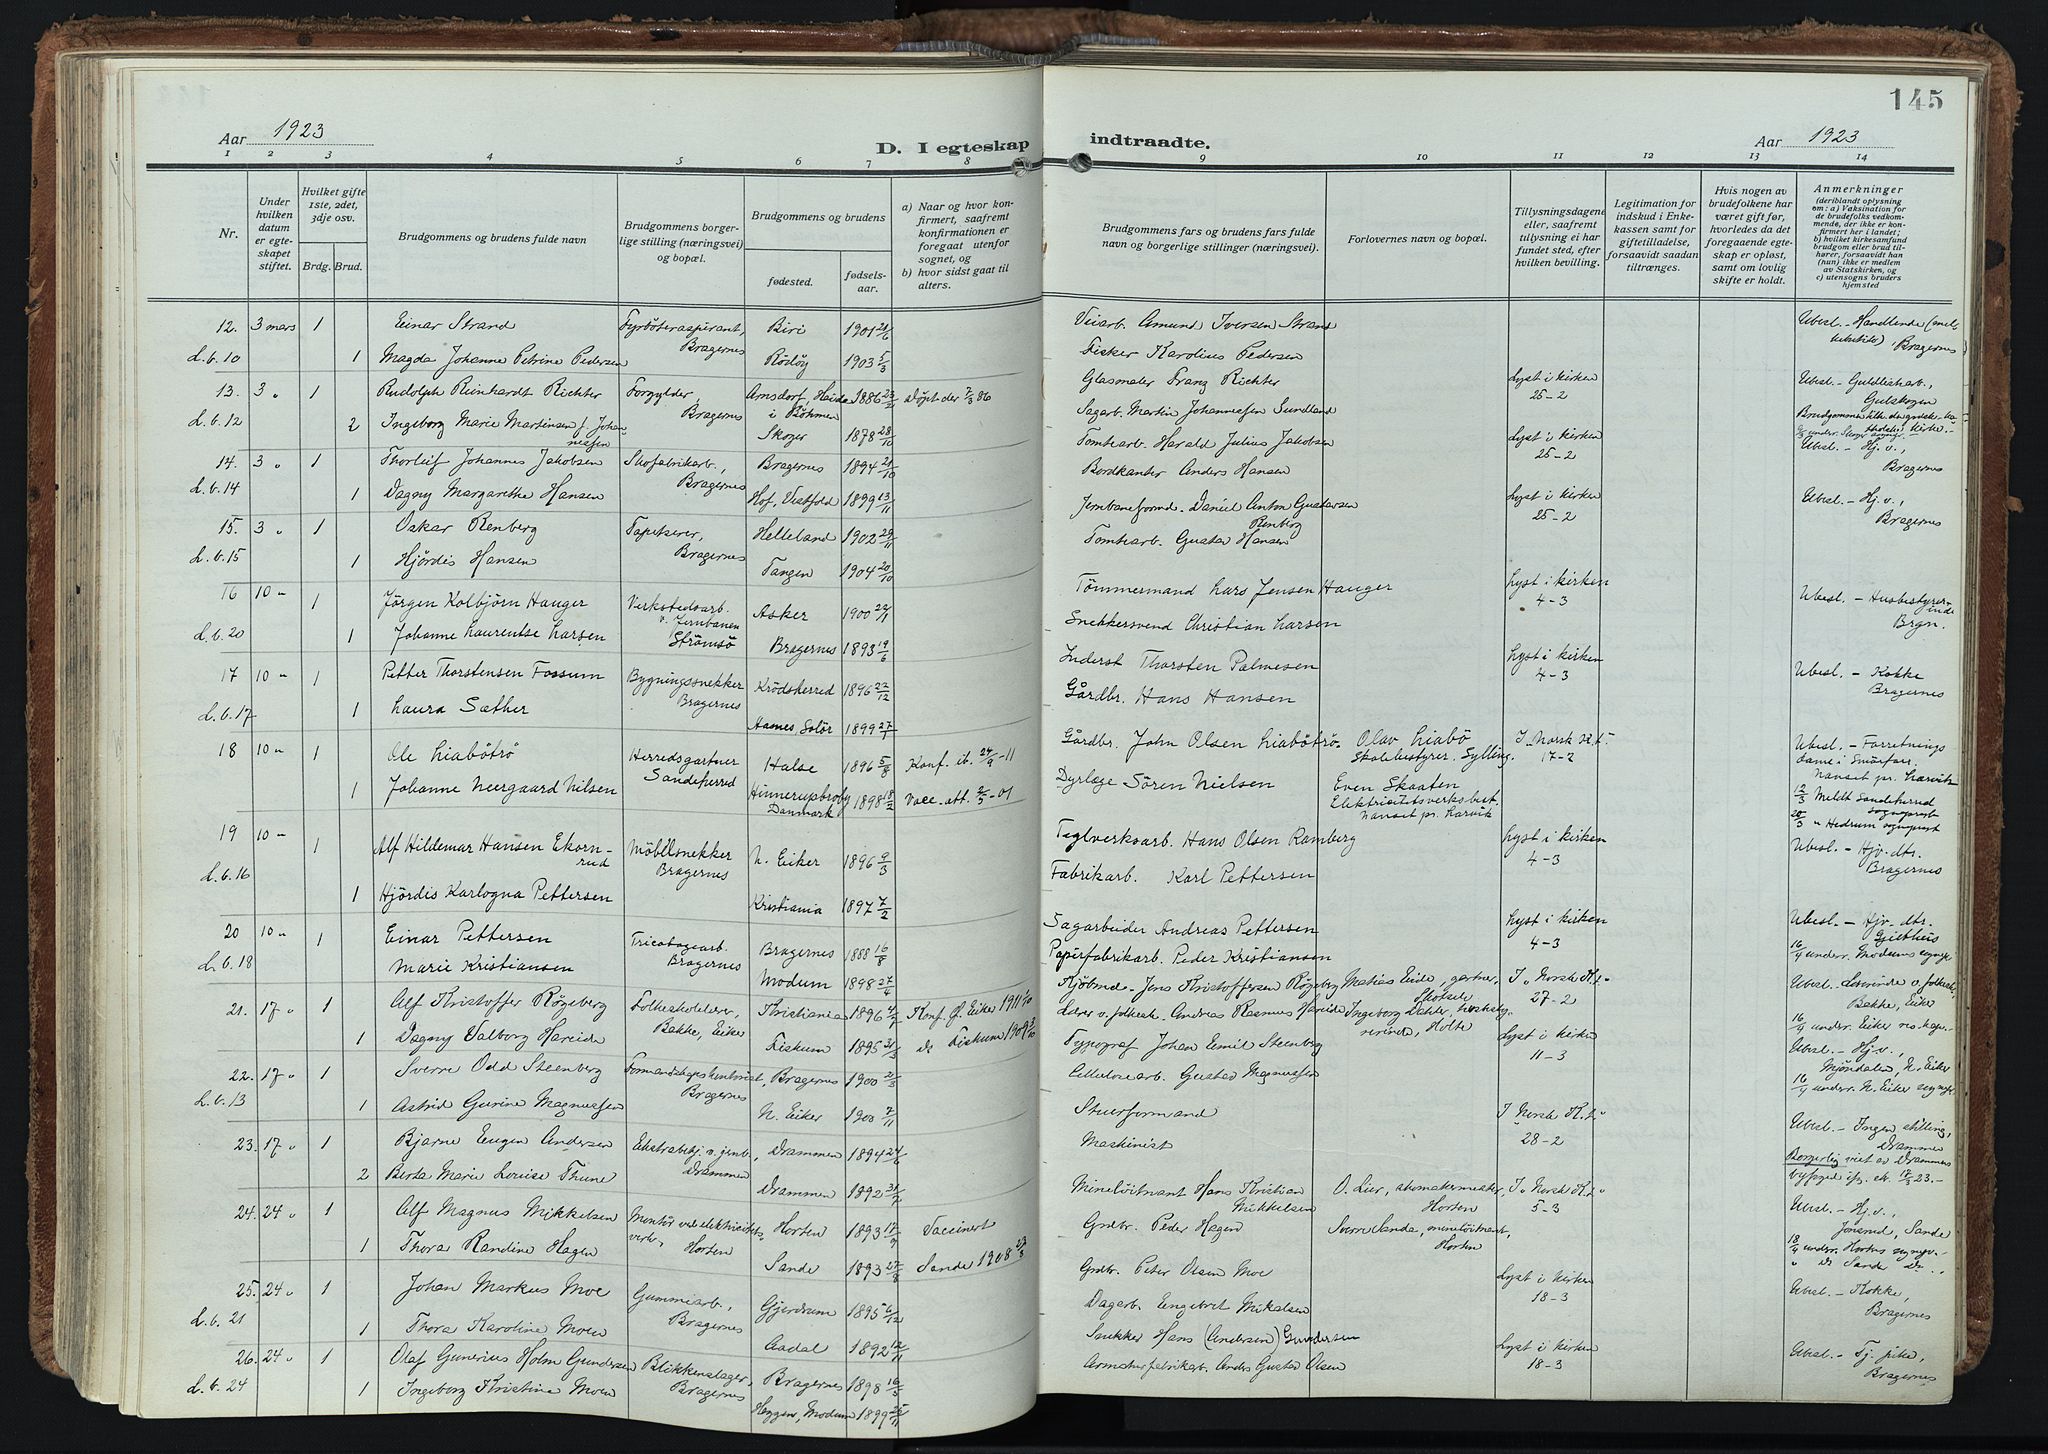 145
Aar 1923
D. I egteskap indtraadte.
Aar 1923
1 2 3 4 5 6 7 8 9 10 11 12 13 14
Nr.
Under hvilken datum er egteskapet stiftet.
Hvilket gifte 1ste, 2det, 3dje osv.
Brdg. Brud.
Brudgommens og brudens fulde navn
Brudgommens borgerlige stilling (næringsvei) og bopæl.
Brudgommens og brudens
fødested.
fødselsaar.
a) Naar og hvor konfirmert, saafremt konfirmationen er foregaat utenfor sognet, og
b) hvor sidst gaat til alters.
Brudgommens fars og brudens fars fulde navn og borgerlige stillinger (næringsvei).
Forlovernes navn og bopæl.
Tillysningsdagene eller, saafremt tillysning ei har fundet sted, efter hvilken bevilling.
Legitimation for indskud i Enkekassen samt for giftetilladelse, forsaavidt saadan tiltrænges.
Hvis nogen av brudefolkene har været gift før, hvorledes da det foregaaende egteskap er opløst, samt om lovlig skifte er holdt.
Anmerkninger (deriblandt oplysning om: a) Vaksination for de brudefolks vedkommende, der ikke er konfirmert her i landet; b) hvilket kirkesamfund brudgom eller brud tilhører, forsaavidt han (hun) ikke er medlem av Statskirken, og c) utensogns bruders hjemsted
12. 3 mars 1 Einar Strand Fyrböteraspirant, Bragernes Biri 1901 21/6 Veiarb. Amund Iversen Strand Ubesl. – Handlende Bragernes
L.b.10 1 Magda Johanne Petrine Pedersen 1903 5/3 Fisker Karolius Pedersen
13. 3 " 1 Rudolph Reinhardt Richter Forgylder, Bragernes Arnsdorf, Haida i Böhmen 1886 23/2 döpt der 7/3 86 Glasmaler Franz Richter Lyst i kirken 25-2 Ubesl. – Guldlistarb., Gulskogen
L.b.12 2 Ingeborg Marie Martinsen f. Johannessen Skoger 1878 28/10 Sagarb. Martin Johannessen Sundland
14. 3 " 1 Thorleif Johannes Jakobsen Skofabrikarb., Bragernes Bragernes 1894 21/10 Tomtearb. Harald Julius Jakobsen Lyst i kirken 25-2 Ubesl. – Hj. v., Bragernes
L.b.14 1 Dagny Margarethe Hansen Hof, Vestfold 1899 13/11 Bordkanter Anders Hansen
15. 3 " 1 Oskar Renberg Tapetserer, Bragernes Helleland 1902 29/11 Jernbaneformd. Daniel Anton Gustavsen Renberg Lyst i kirken 25-2 Ubesl. – Hj. v., Bragernes
L.b.15 1 Hjördis Hansen Tangen 1904 20/10 Tomtearb. Gustav Hansen
16 10 " 1 Jörgen Kolbjörn Hauger Verkstedsarb. v. Jernbanen Strömsö Asker 1900 Tömmermand Lars Jensen Hauger Lyst i kirken 4-3 Ubesl. – Husbestyrerinde Brgn.
L.b.20 1 Johanne Laurentse Larsen Bragernes 1893 19/6 Snekkersvend Christian Larsen
17 10 " 1 Petter Thorstensen Fossum Bygningssnekker Bragernes Krödsherred 1896 22/12 Inderst Thorsten Palmesen Lyst i kirken 4-3 Ubesl. – Kokke Bragernes
L.b.17 1 Laura Sæther Aasnes, Solör 1899 Gårdbr. Hans Hansen
18 10 " 1 Ole Liabötrö Herredsgartner Sandeherred Halse 1896 5/8 Konf. ib. 24/9-11 Gårdbr. John Olsen Liabötrö Olav Liabö Skolebestyrer, Sylling. I. Norsk K.t. 17-2 Ubesl. – Forretningsdame i Smörfor. Nanset pr. Larvik
1 Johanne Neergaard Nilsen Hinnerupbroby Danmark 1898 18/2 Vacc. att. 2/5-01 Dyrlæge Sören Nielsen Even Skaaten Elektricitetsverksbest. Nanset pr. Larvik 12/3 Meldt Sandeherred sogneprest 20/3 " Hedrum sogneprest
19 10 " 1 Alf Hildemar Hansen Ekornrud Möbelsnekker Bragernes N. Eiker 1896 9/3 Teglverksarb. Hans Olsen Ramberg Lyst i kirken 4-3 Ubesl. – Hjv. dtr. Bragernes
L.b.16 1 Hjördis Karlogna Pettersen Kristiania 1897 7/2 Fabrikarb. Karl Pettersen
20 10 " 1 Einar Pettersen Tricotagearb. Bragernes Bragernes 1888 16/8 Sagarbeider Andreas Pettersen Lyst i kirken 4-3 Ubesl. – Hjv. dtr. Geithus
L.b.18 Marie Kristiansen Modum 1898 27/4 Papirfabrikarb. Peder Kristiansen 16/4 underr. Modums sognepr.
21. 17 " 1 Alf Kristoffer Rögeberg Folkeskolelærer, Bakke, Eiker Kristiania 1896 4/7 Konf. Ø. Eiker 1911 1/10 Kjöbmd. Jens Kristoffersen Rögeberg Mathias Eide, gartner, Skotselv I. Norsk K.t. 27-2 Ubesl. – Lærerinde v. folkesk. Bakke, Eiker
1 Dagny Valborg Hareide Fiskum 1895 do Fiskum 1909 Lærer v. folkesk. Andreas Rasmus Hareide Ingeborg Dahler, Holte 16/4 underr. Eiker res. kap.
22. 17 " 1 Sverre Odd Steenberg Formandskapskontorist, Bragernes Bragernes 1900 21/3 Typograf Johan Emil Steenberg Lyst i kirken 11-3 Ubesl. – Hj. v., Mjöndalen, N. Eiker
L.b.13 1 Astrid Gurine Magnussen N. Eiker 1900 7/11 Cellulosearb. Gustav Magnussen 16/4 underr. N. Eiker sognepr.
23. 17 " 1 Bjarne Eugen Andersen Ekstrabetj. v. jernb., Drammen Drammen 1894 24/6 Stuerformand I. Norsk K.t. 28-2 Ubesl. – Ingen stilling, Drammen
2 Berta Marie Louise Thune Drammen 1892 31/7 Maskinist Borgerlig viet av Drammens byfoged
24. 24 " 1 Alf Magnus Mikkelsen Montör ved elektricitetsverk, Horten Horten 1893 17/9 Vaccinert Mineløitnant Hans Kristian Mikkelsen O. Lier, Horten I. Norsk K.t. 5-3 Ubesl. – Hj. v., Sande
1 Thora Randine Hagen Sande 1893 27/8 Sande 1908 Grdbr. Peder Hagen Sverre Sanda, mineløitnant, Horten 18/4 underr. Horten sognepr. " do Sande do
25. 24 " 1 Johan Markus Moe Gummiarb., Bragernes Gjerdrum 1895 6/12 Grdbr. Peter Olsen Moe Lyst i kirken 18-3 Ubesl. – Kokke, Bragernes
L.b.21 1 Thora Karoline Moen Aadal 1892 12/11 Dagarb. Engebret Mikalsen
26. 24 " 1 Olaf Gunerius Holm Gundersen Blikkenslager, Bragernes Bragernes 1898 16/5 Snekker Hans (Andersen) Gundersen Lyst i kirken 18-3 Ubesl. – Tj. pike, Bragernes
L.b.24 1 Ingeborg Kristine Moen Heggen, Modum 1899 25/11 Armaturfabrikarb. Anders Gustav Olsen